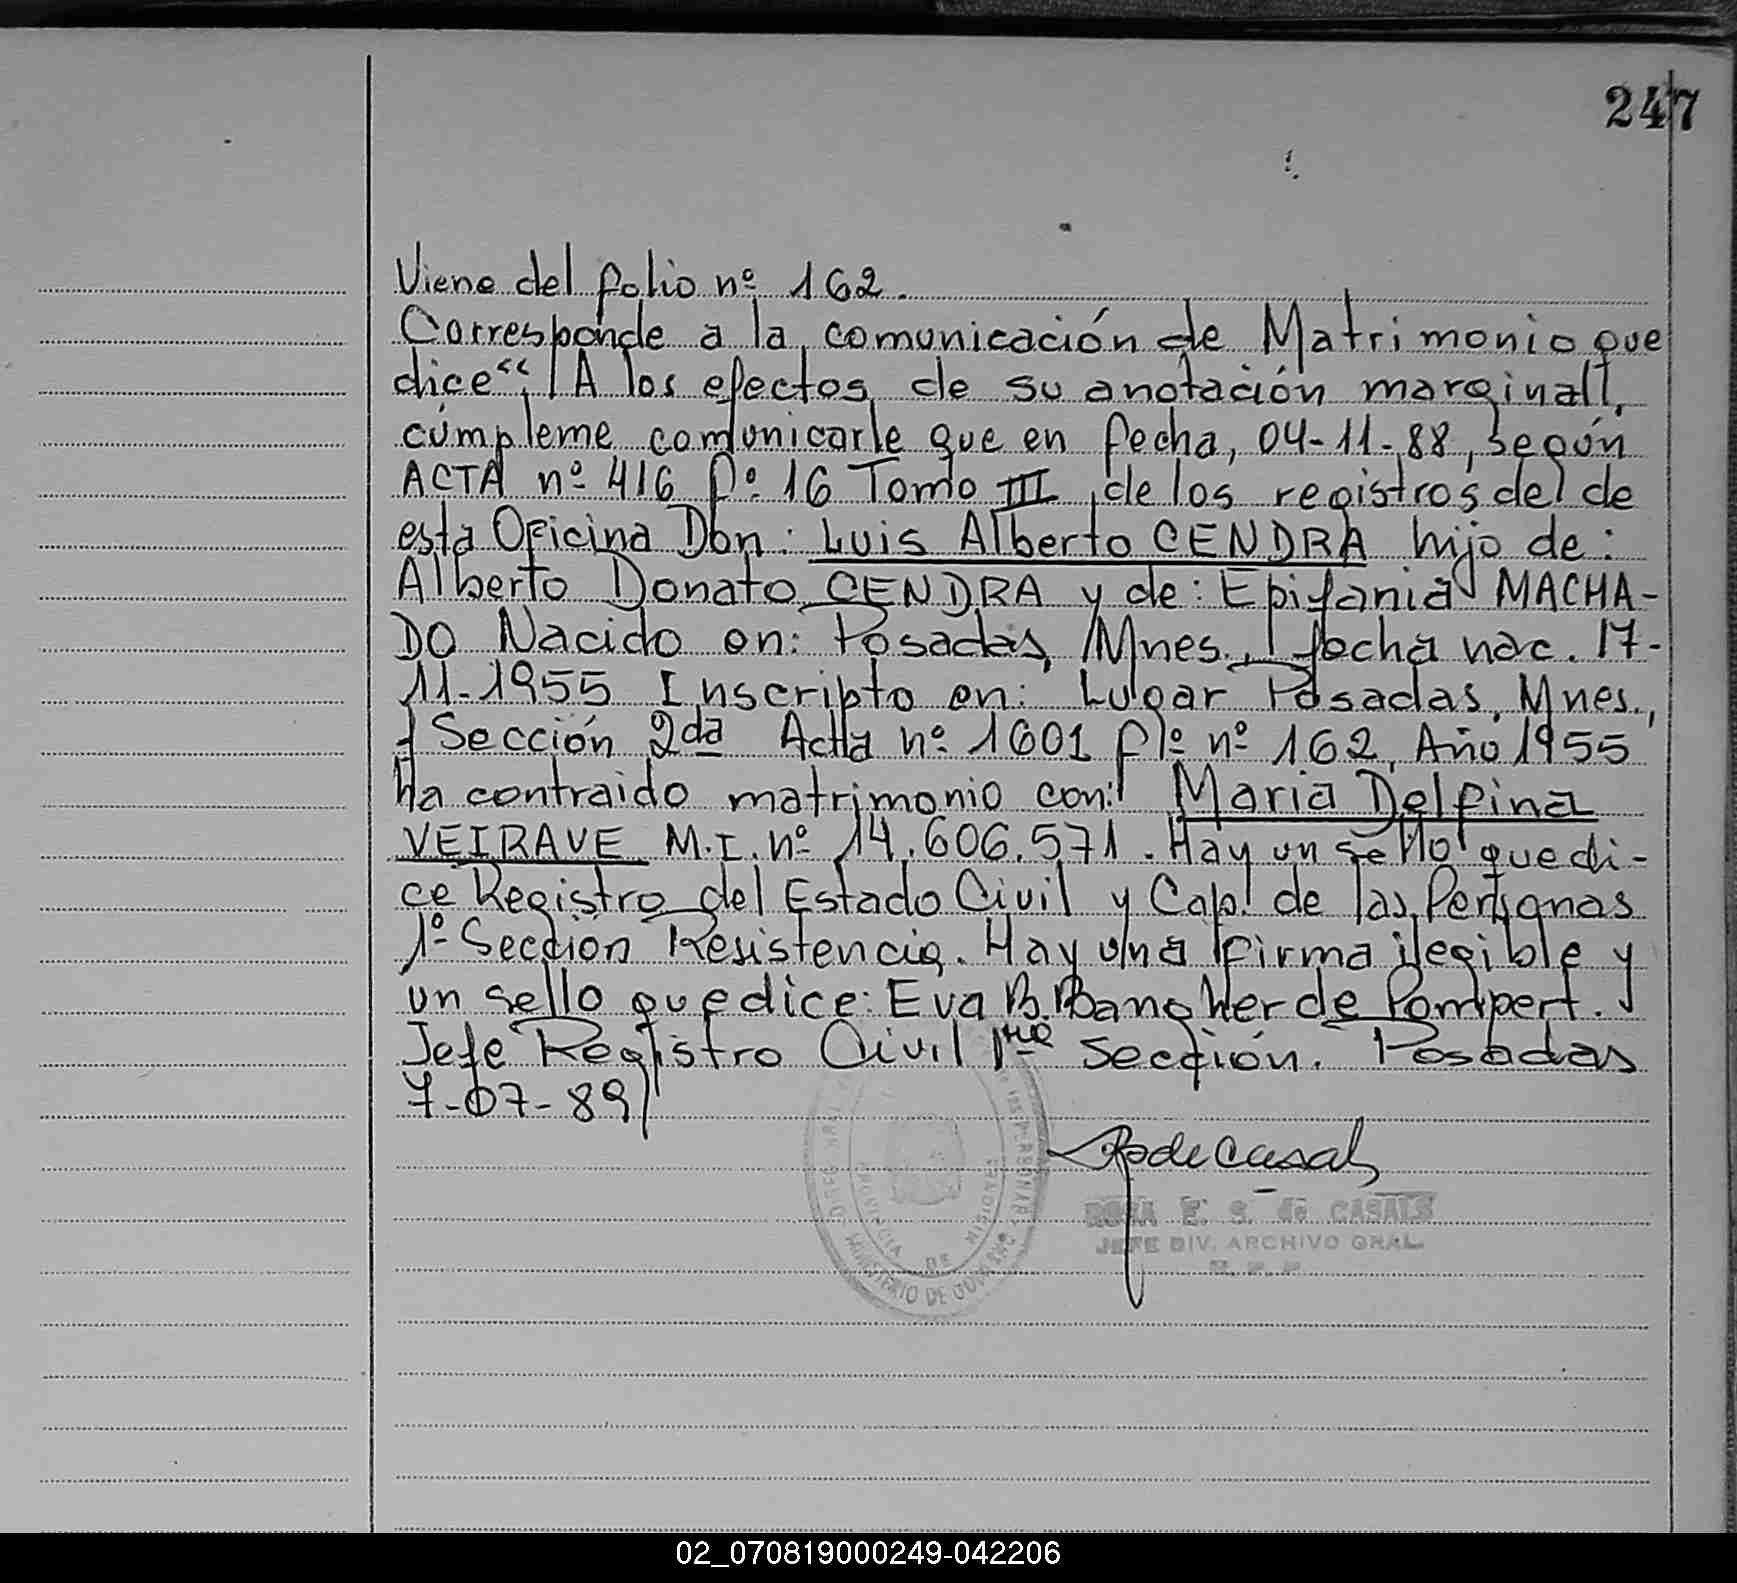 247
Viene del folio nº 162.
Corresponde a la comunicación de Matrimonio que
dice “ A los efectos de su anotación marginal,
cúmpleme comunicarle que en fecha, 04-11-88, según
ACTA nº 416 fº 16 Tomo III, de los registros del de
esta Oficina Don: Luis Alberto CENDRA hijo de:
Alberto Donato CENDRA y de: Epifania MACHA-
DO Nacido en: Posadas, Mnes., fecha nac. 17-
11-1955 Inscripto en: Lugar Posadas, Mnes.,
Sección 2da Acta nº 1601 flº nº 162, Año 1955
ha contraido matrimonio con: Maria Delfina
VEIRAVE M.I. nº 14.606.571. Hay un sello que di-
ce Registro del Estado Civil y Cap. de las Personas
1º Seccion Resistencia. Hay una firma ilegible y
un sello que dice: Eva B. Bangher de Pompert.
Jefe Registro Civil 1ra sección. Posadas
7-07-89
RdeCasals
ROSA E. S. de CASALS
JEFE DIV. ARCHIVO GRAL.
PROVINCIA DE MISIONES
MINISTERIO DE GOBIERNO
02_070819000249-042206